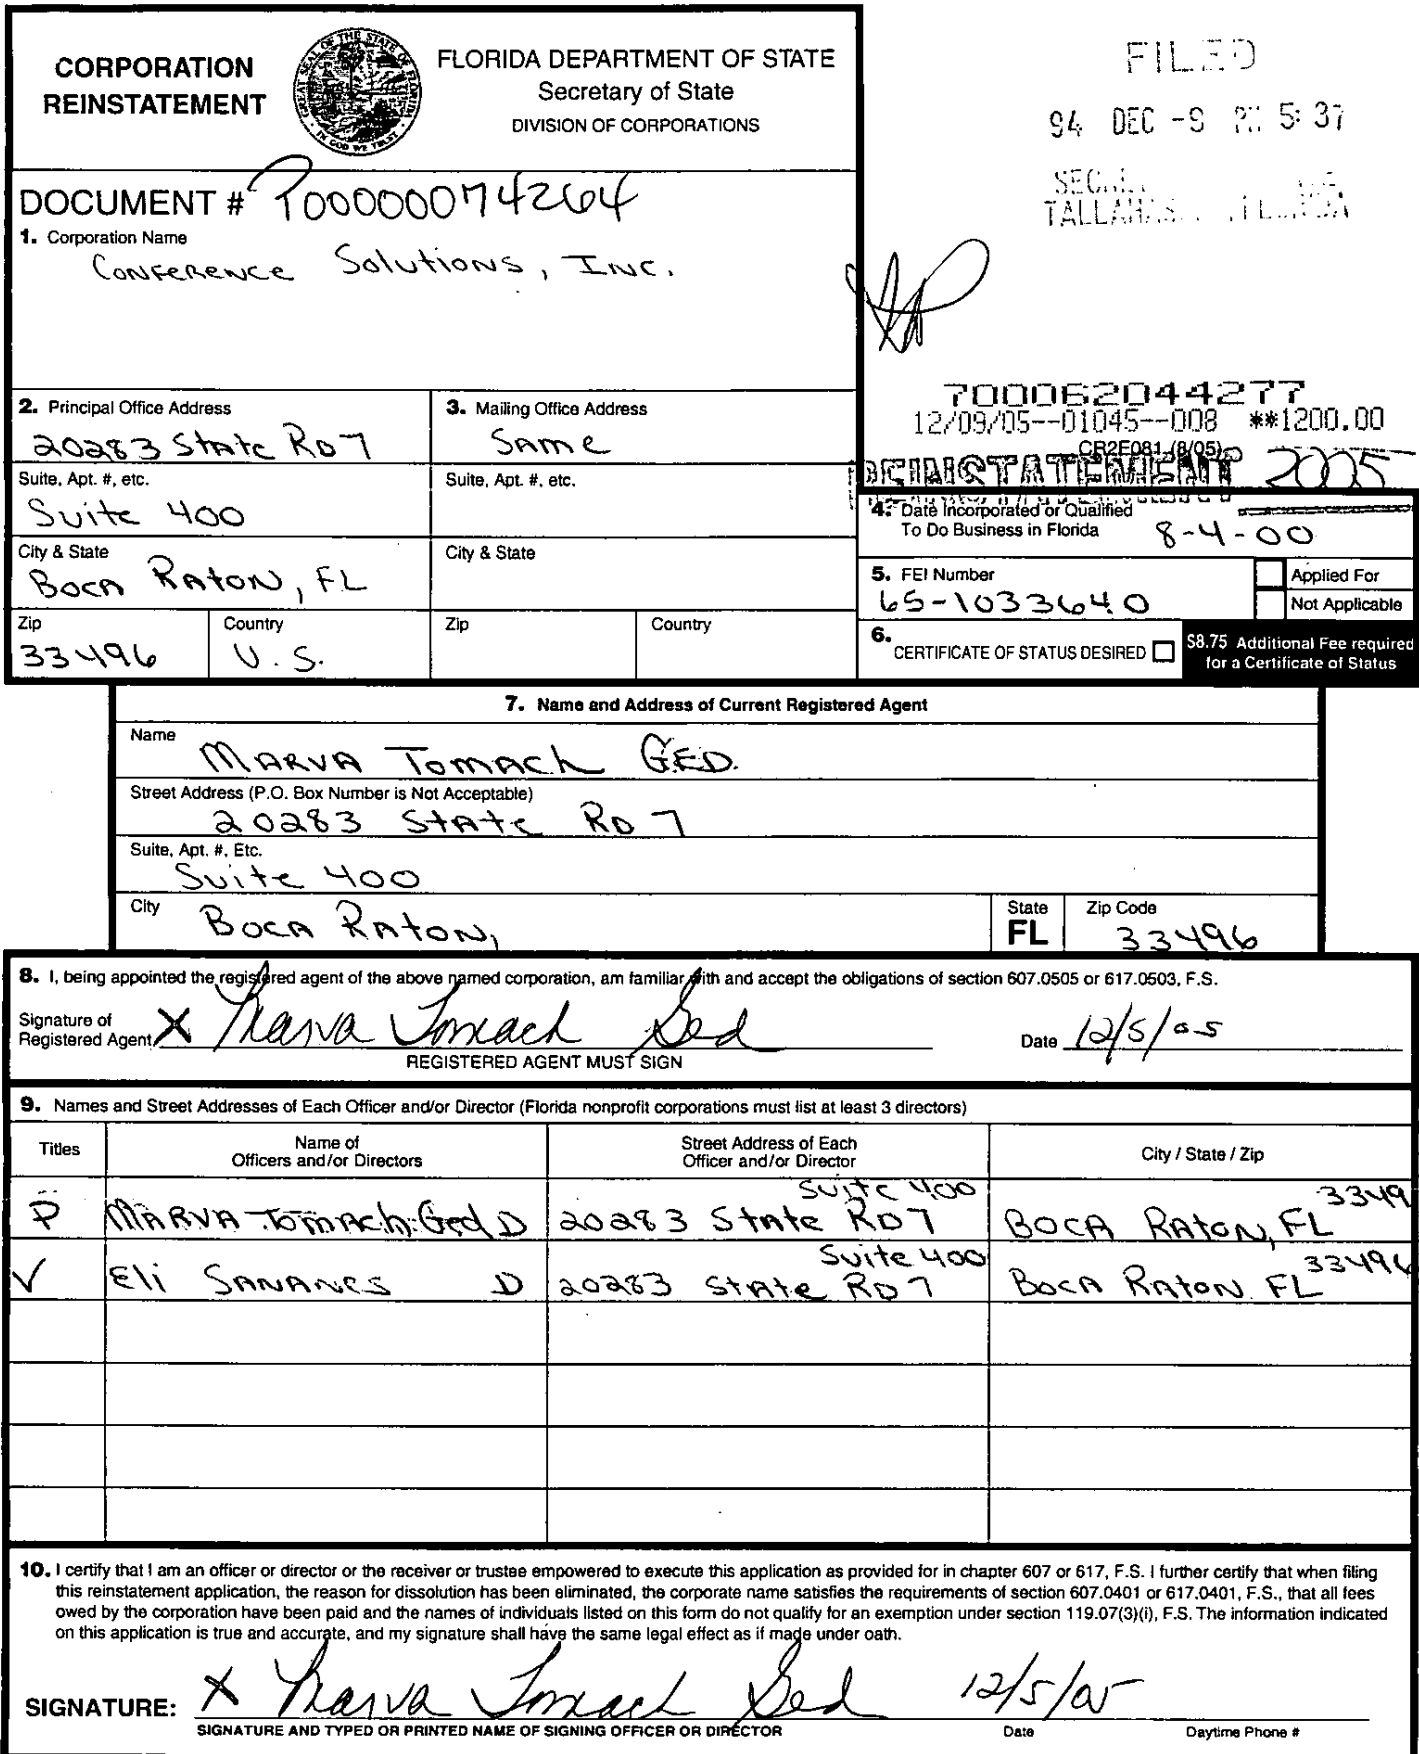 CORPORATION
REINSTATEMENT
FLORIDA DEPARTMENT OF STATE
Secretary of State
DIVISION OF CORPORATIONS
FILED
94 DEC -9 PM 5:37
TALLAHAS
DOCUMENT # P00000074264
1. Corporation Name
Conference Solutions, Inc.
700062044277
12/09/05--01045--008 **1200.00
CR2E081 (8/05)
REINSTATEMENT 2005
2. Principal Office Address
20283 State Rd 7
3. Mailing Office Address
Same
Suite, Apt. #, etc.
Suite 400
Suite, Apt. #, etc.
City & State
Boca Raton, FL
City & State
Zip
33496
Country
U.S.
Zip
Country
4. Date Incorporated or Qualified
To Do Business in Florida 8-4-00
5. FEI Number
65-1033640
Applied For
Not Applicable
6. CERTIFICATE OF STATUS DESIRED
$8.75 Additional Fee required
for a Certificate of Status
7. Name and Address of Current Registered Agent
Name
Marva Tomach Ged
Street Address (P.O. Box Number is Not Acceptable)
20283 State Rd 7
Suite, Apt. #, Etc.
Suite 400
City
Boca Raton,
State
FL
Zip Code
33496
8. I, being appointed the registered agent of the above named corporation, am familiar with and accept the obligations of section 607.0505 or 617.0503, F.S.
Signature of
Registered Agent X Marva Tomach Ged
Date 12/5/05
REGISTERED AGENT MUST SIGN
9. Names and Street Addresses of Each Officer and/or Director (Florida nonprofit corporations must list at least 3 directors)
Titles
Name of
Officers and/or Directors
Street Address of Each
Officer and/or Director
City / State / Zip
P Marva Tomach-Ged D 20283 State Rd 7 Suite 400 Boca Raton, FL 3349
V Eli Sananes D 20283 State Rd 7 Suite 400 Boca Raton FL 33496
10. I certify that I am an officer or director or the receiver or trustee empowered to execute this application as provided for in chapter 607 or 617, F.S. I further certify that when filing
this reinstatement application, the reason for dissolution has been eliminated, the corporate name satisfies the requirements of section 607.0401 or 617.0401, F.S., that all fees
owed by the corporation have been paid and the names of individuals listed on this form do not qualify for an exemption under section 119.07(3)(i), F.S. The information indicated
on this application is true and accurate, and my signature shall have the same legal effect as if made under oath.
SIGNATURE: X Marva Tomach Ged 12/5/05
SIGNATURE AND TYPED OR PRINTED NAME OF SIGNING OFFICER OR DIRECTOR
Date
Daytime Phone #